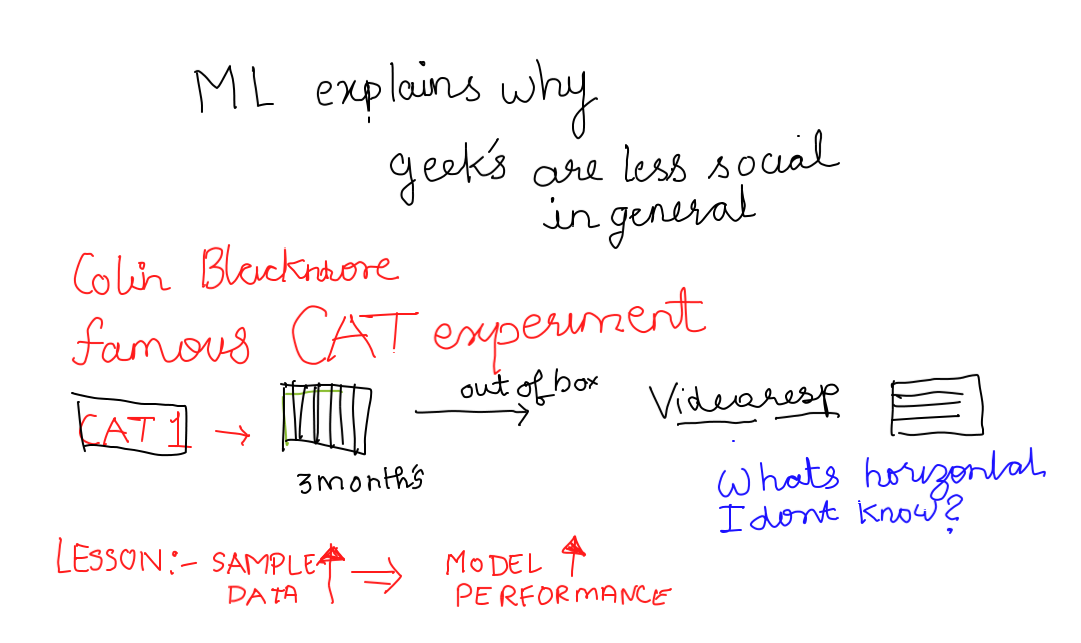 ML explains why
geek's are less social
in general
Colin Blackmore
famous CAT experiment
CAT 1 → 3 month's
out of box
Videoresp
Whats horizontal,
I dont know?
LESSON:- SAMPLE ↑ ⇒ MODEL ↑
DATA PERFORMANCE